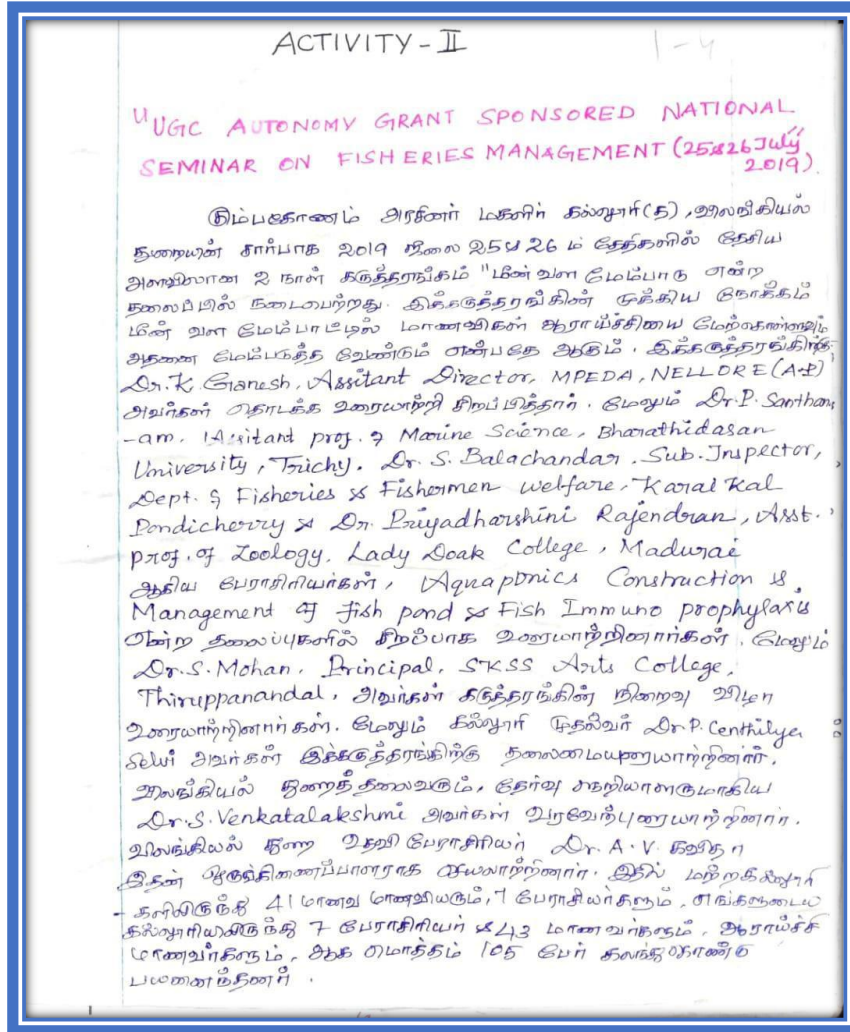 ACTIVITY - II
1-4
"UGC AUTONOMY GRANT SPONSORED NATIONAL
SEMINAR ON FISHERIES MANAGEMENT (25&26 July
2019).
கும்பகோணம் அரசினர் மகளிர் கல்லூரி(த), விலங்கியல்
துறையின் சார்பாக 2019 ஜீலை 25 & 26 ம் தேதிகளில் தேசிய
அளவிலான 2 நாள் கருத்தரங்கம் "மீன் வள மேம்பாடு என்ற
தலைப்பில் நடைபெற்றது. இக்கருத்தரங்கின் முக்கிய நோக்கம்
மீன் வள மேம்பாட்டில் மாணவிகள் ஆராய்ச்சியை மேற்கொள்ளவும்
அதனை மேம்படுத்த வேண்டும் என்பதே ஆகும். இக்கருத்தரங்கிற்கு
Dr.K. Ganesh, Assitant Director, MPEDA, NELLORE (A.P)
அவர்கள் தொடக்க உரையாற்றி சிறப்பித்தார். மேலும் Dr.P. Santhan
-am. Assitant prof. of Marine Science, Bharathidasan
University, Trichy. Dr. S. Balachandar, Sub. Inspector,
Dept. of Fisheries & Fishermen welfare, Karaikal
Pondicherry & Dr. Priyadharshini Rajendran, Asst.
prof. of Zoology, Lady Doak College, Madurai
ஆகிய பேராசிரியர்கள், Aquaponics Construction &
Management of fish pond & Fish Immuno prophylaxis
என்ற தலைப்புகளில் சிறப்பாக உரையாற்றினார்கள். மேலும்
Dr.S. Mohan, Principal, SKSS Arts College,
Thiruppanandal, அவர்கள் கருத்தரங்கின் நிறைவு விழா
உரையாற்றினார்கள். மேலும் கல்லூரி முதல்வர் Dr.P. Centhilya
Selvi அவர்கள் இக்கருத்தரங்கிற்கு தலைமையுரையாற்றினார்.
விலங்கியல் துறைத்தலைவரும், தேர்வு நெறியாளருமாகிய
Dr.S. Venkatalakshmi அவர்கள் வரவேற்புரையாற்றினார்.
விலங்கியல் துறை உதவி பேராசிரியர் Dr. A. V. கவிதா
இதன் ஒருங்கிணைப்பாளராக செயலாற்றினார். இதில் மற்றகல்லூரி
- களிலிருந்து 41 மாணவ மாணவியரும், 7 பேராசியர்களும், எங்களுடைய
கல்லூரியிலிருந்து 7 பேராசிரியர் & 43 மாணவர்களும், ஆராய்ச்சி
மாணவர்களும், ஆக மொத்தம் 105 பேர் கலந்துகொண்டு
பயனைந்தனர்.